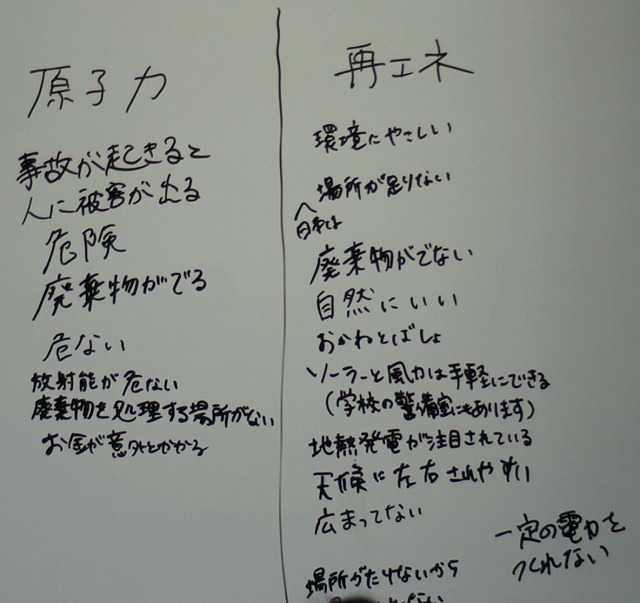 原子力
事故が起きると
人に被害が出る
危険
廃棄物がでる
危ない
放射能が危ない
廃棄物を処理する場所がない
お金が意外とかかる
再エネ
環境にやさしい
場所が足りない
廃棄物がでない
自然にいい
おかねとばしょ
ソーラーと風力は手軽にできる
(学校の警備室にもあります)
地熱発電が注目されている
天候に左右されやすい
広まってない
一定の電力を
つくれない
場所がたりないから